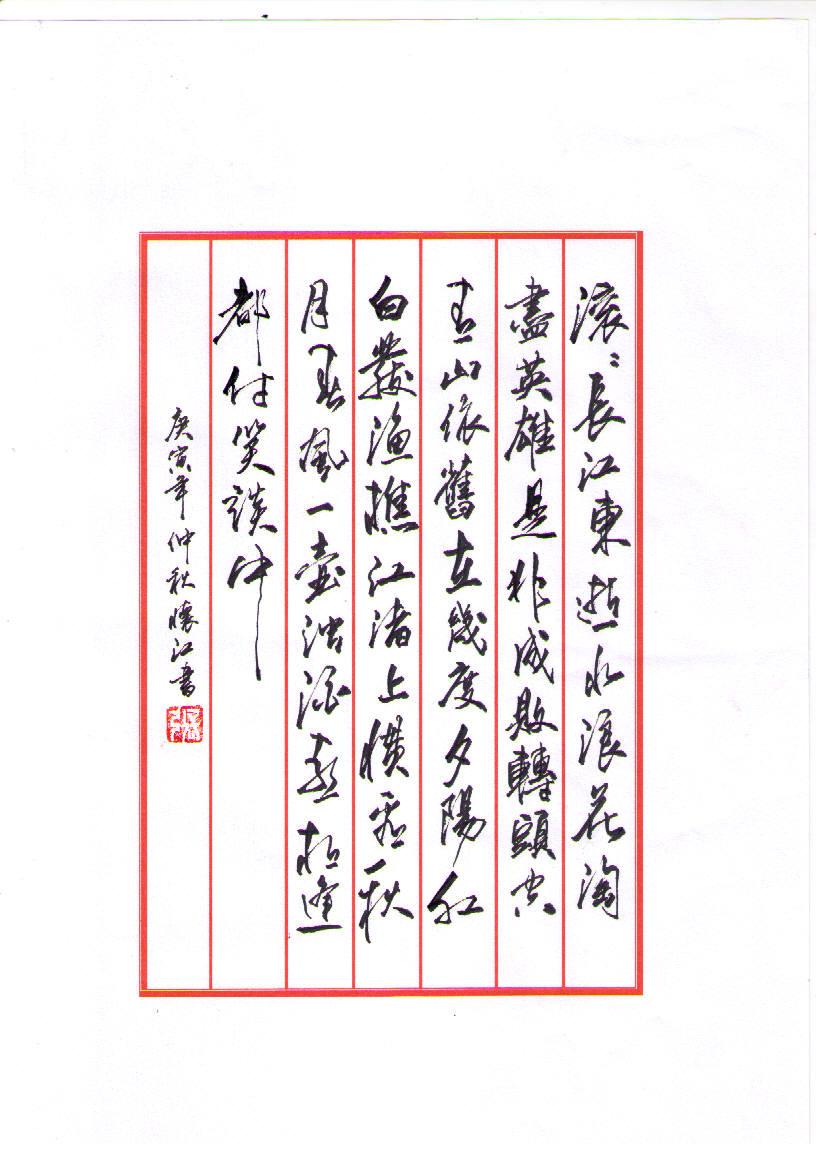 滚〻長江東逝水浪花淘
盡英雄是非成敗轉頭空
青山依舊在幾度夕陽紅
白髮漁樵江渚上慣看秋
月春風一壺濁酒喜相逢
都付笑談中
庚寅年仲秋懷江書